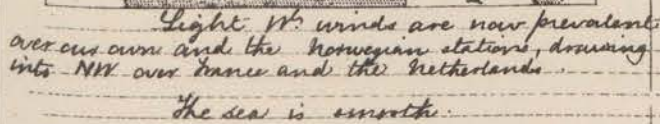 Light Wly winds are now prevalent
over our own and the Norwegian stations, drawing
into NW over France and the Netherlands.
The sea is smooth.